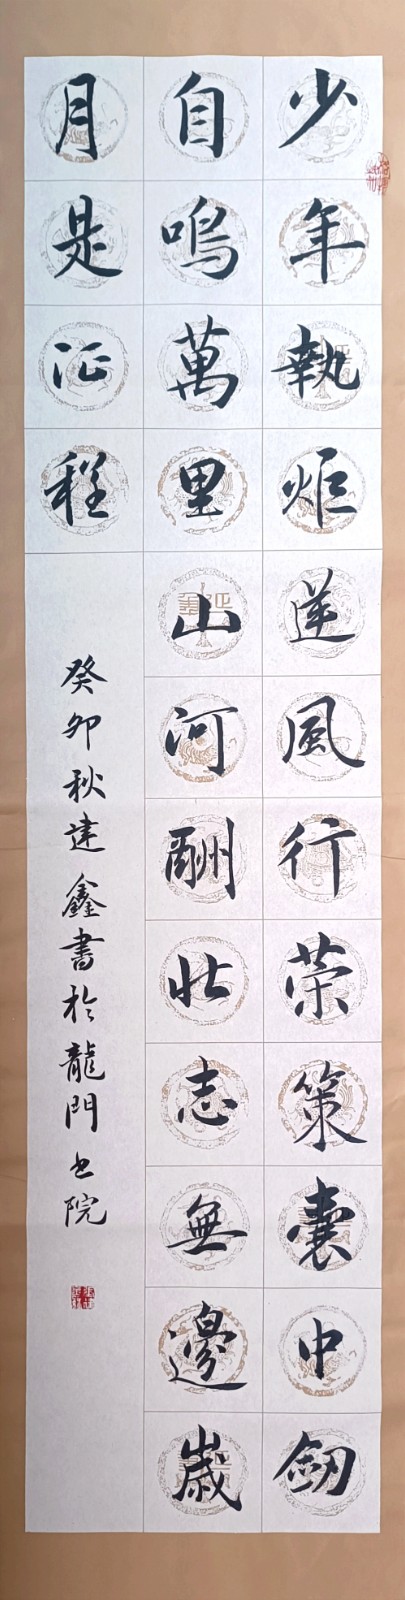 少年執炬逆風行荣策囊中劔
自鳴萬里山河酬壯志無邊歲
月是征程
癸卯秋建鑫書於龍門书院